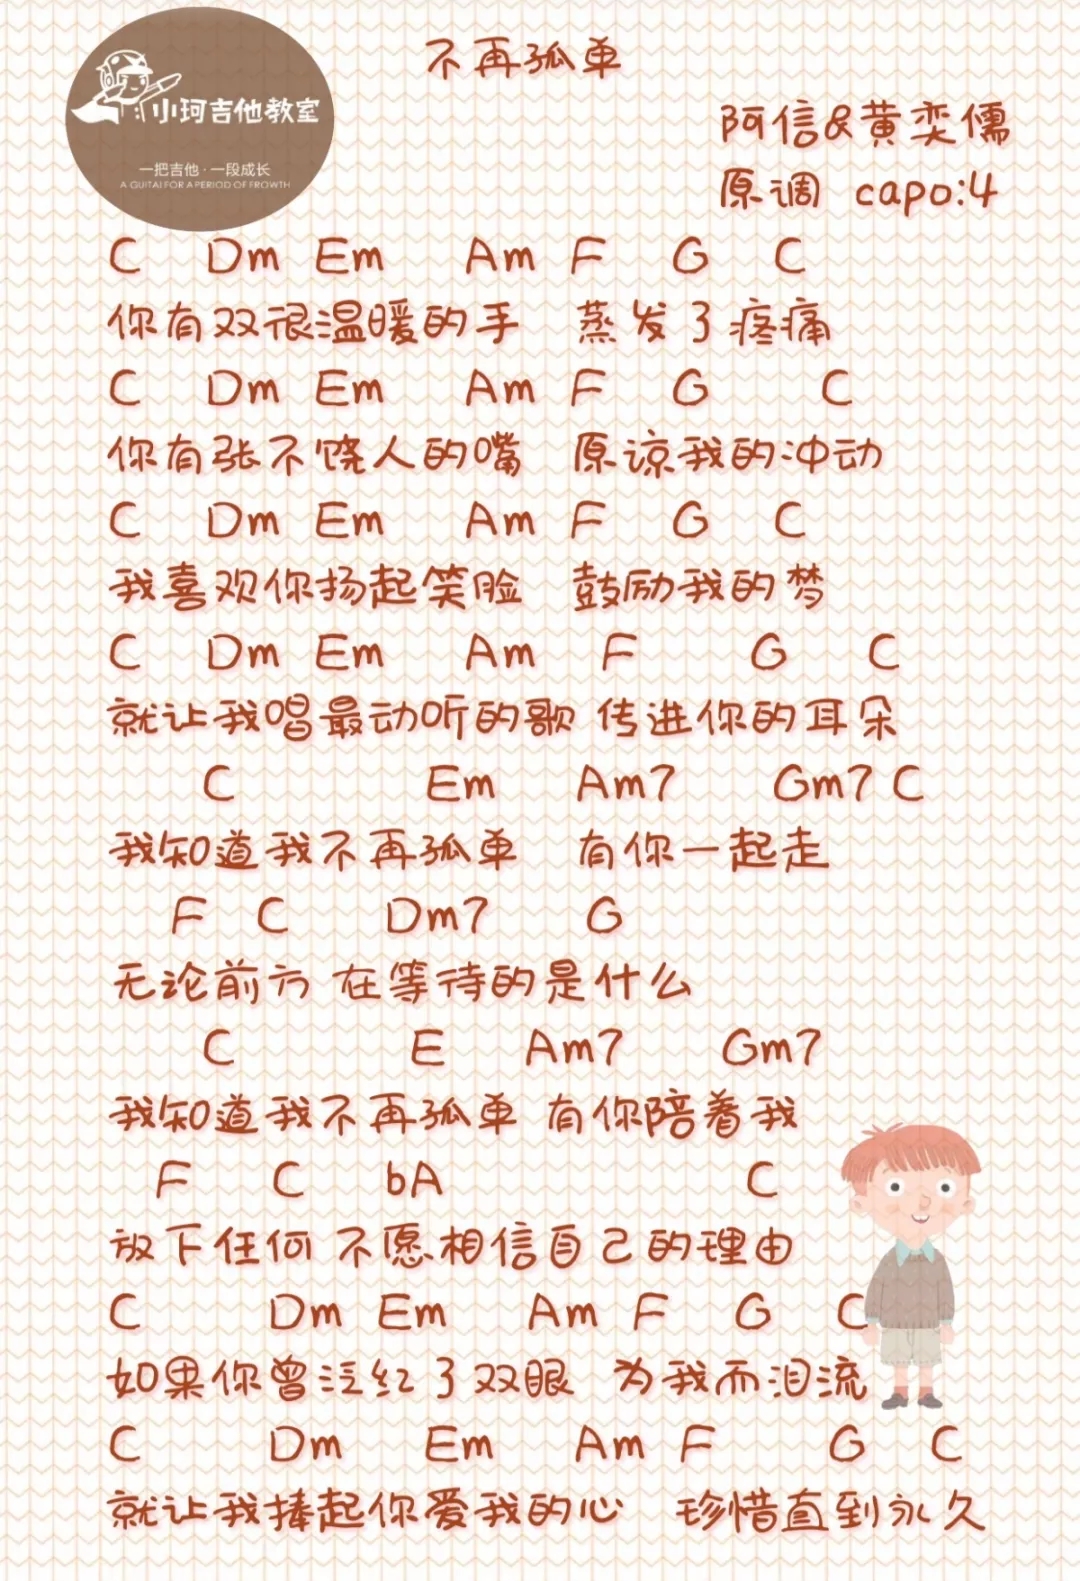 小珂吉他教室
一把吉他·一段成长
A GUITAI FOR A PERIOD OF FROWTH
不再孤单
阿信&黄奕儒
原调 capo:4
C Dm Em Am F G C
你有双很温暖的手 蒸发了疼痛
C Dm Em Am F G C
你有张不饶人的嘴 原谅我的冲动
C Dm Em Am F G C
我喜欢你扬起笑脸 鼓励我的梦
C Dm Em Am F G C
就让我唱最动听的歌 传进你的耳朵
C Em Am7 Gm7 C
我知道我不再孤单 有你一起走
F C Dm7 G
无论前方 在等待的是什么
C E Am7 Gm7
我知道我不再孤单 有你陪着我
F C bA C
放下任何 不愿相信自己的理由
C Dm Em Am F G C
如果你曾泛红了双眼 为我而泪流
C Dm Em Am F G C
就让我捧起你爱我的心 珍惜直到永久